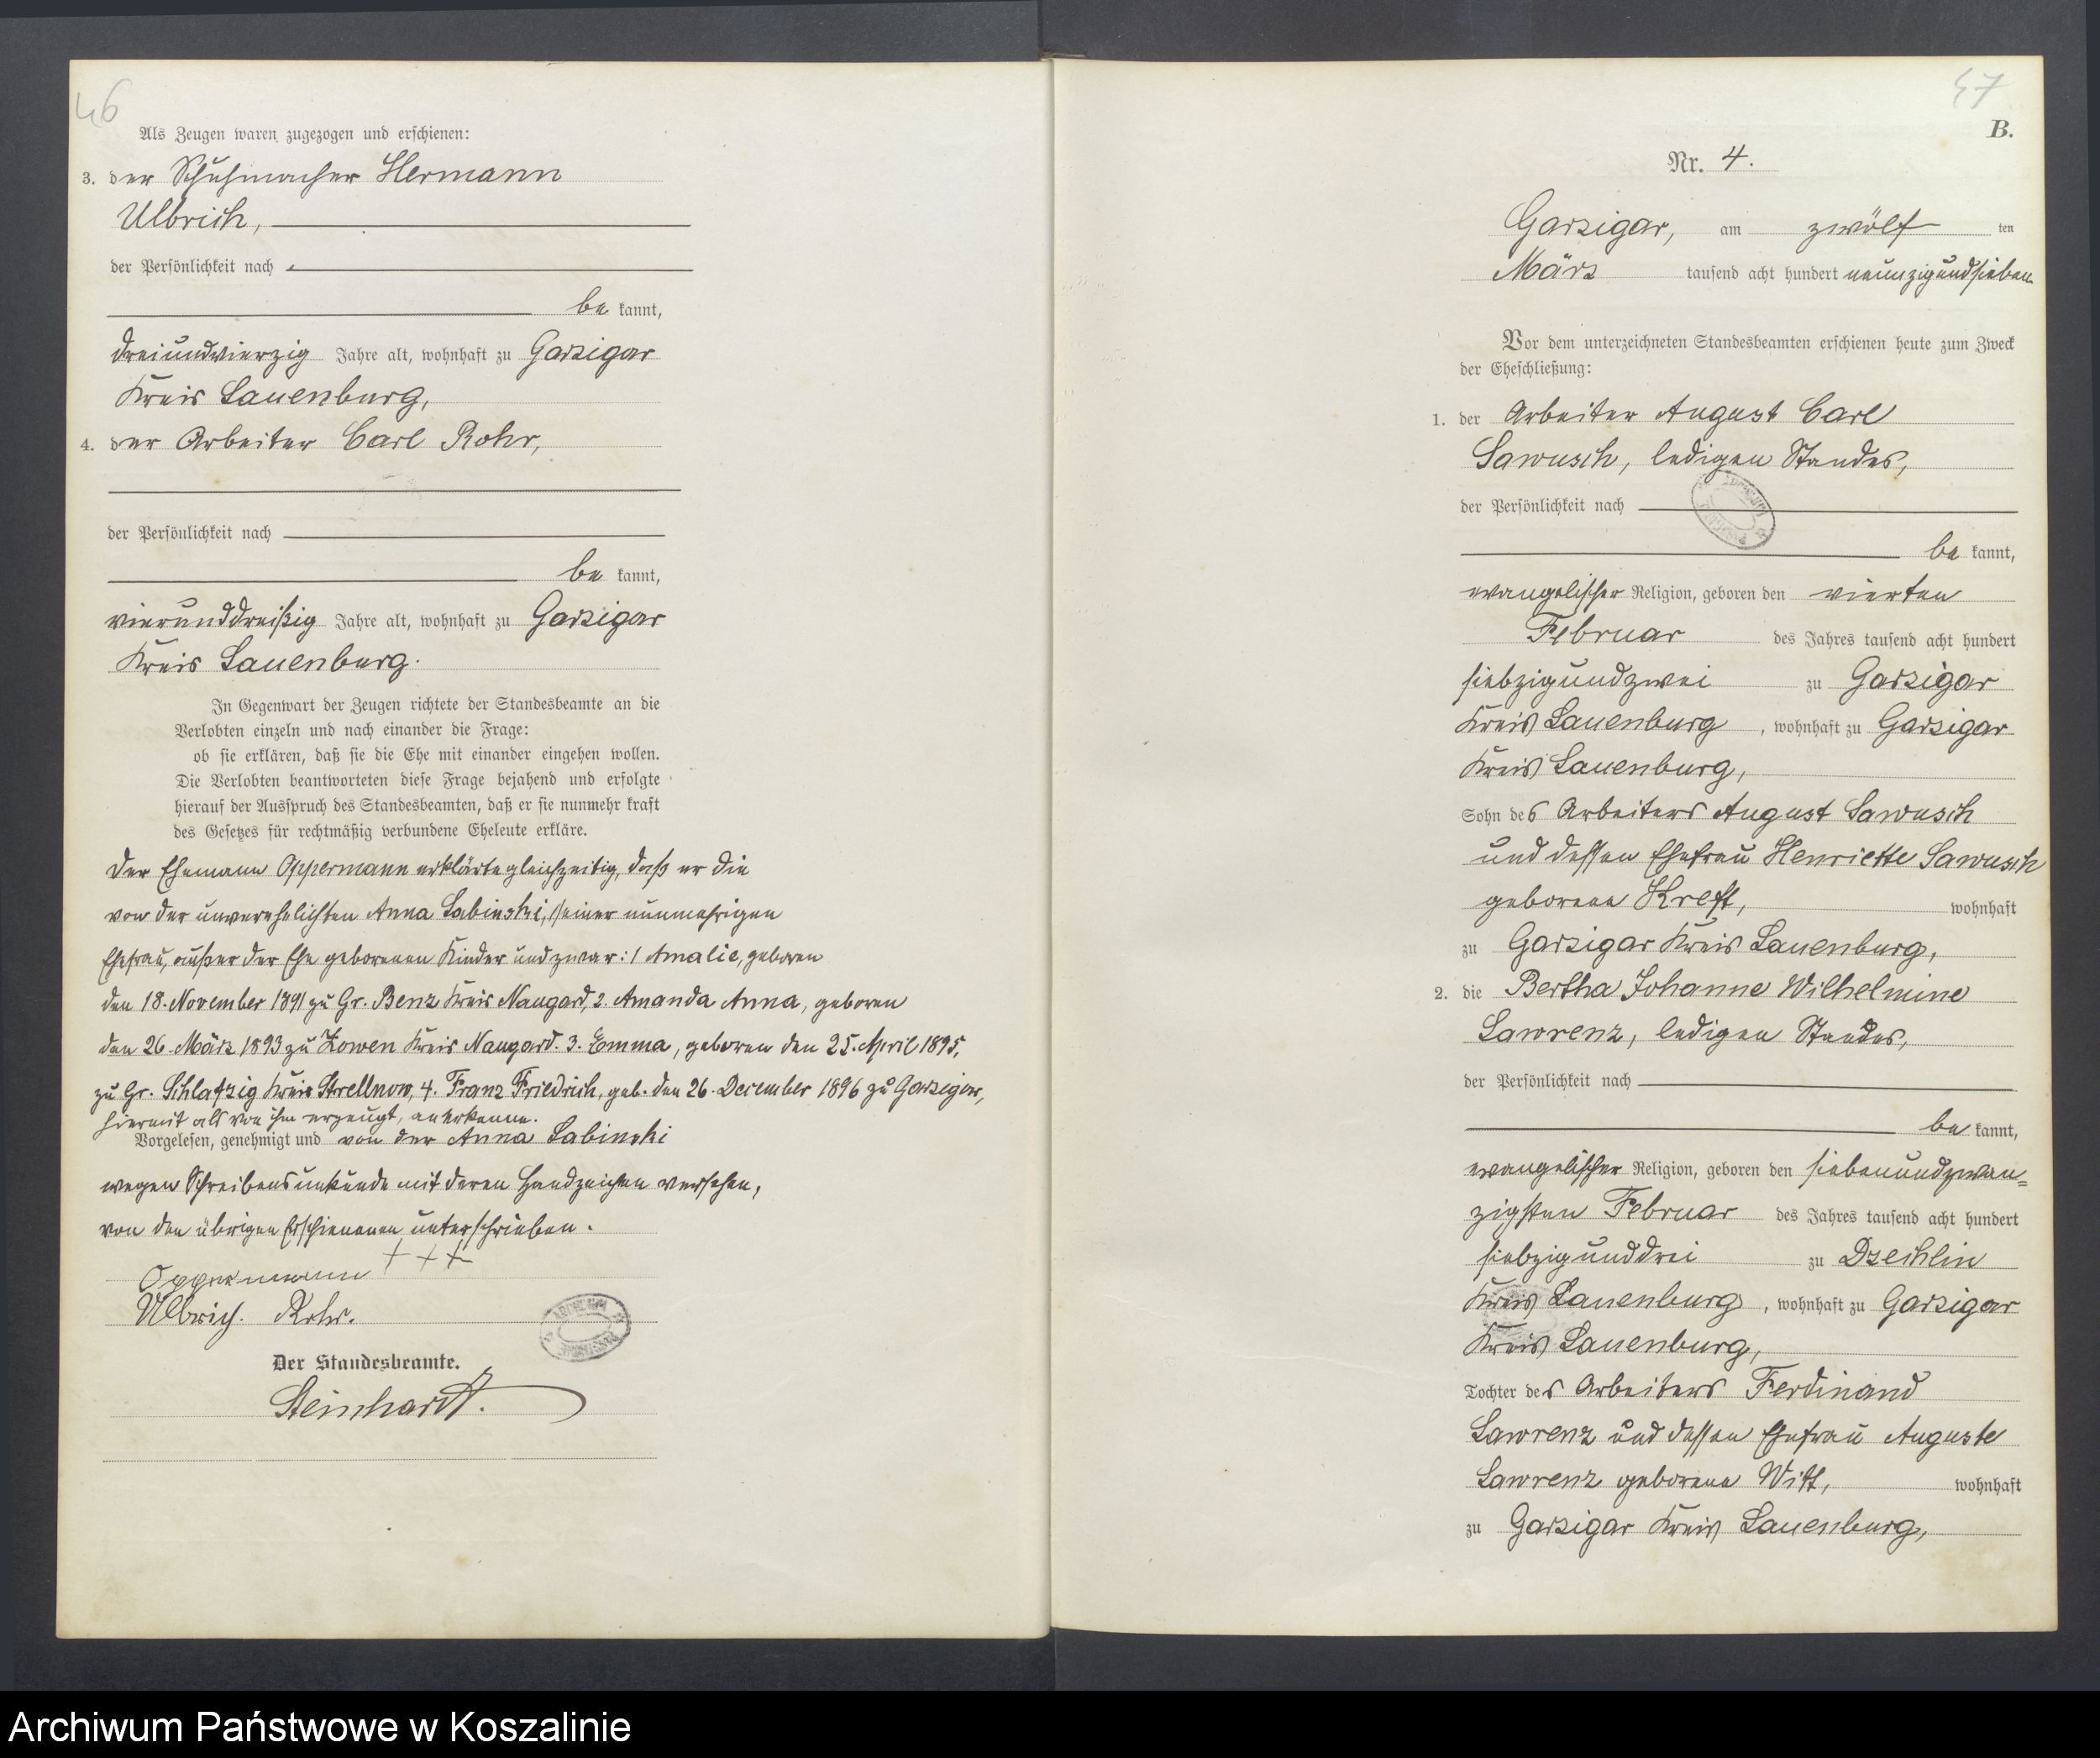 46
Als Zeugen waren zugezogen und erschienen:
3. der Schuhmacher Hermann
Ulbrich,
der Persönlichkeit nach
be kannt,
dreiundvierzig Jahre alt, wohnhaft zu Garzigar
Kreis Lauenburg,
4. der Arbeiter Carl Rohr,
der Persönlichkeit nach
be kannt,
vierunddreißig Jahre alt, wohnhaft zu Garzigar
Kreis Lauenburg.
In Gegenwart der Zeugen richtete der Standesbeamte an die
Verlobten einzeln und nach einander die Frage:
ob sie erklären, daß sie die Ehe mit einander eingehen wollen.
Die Verlobten beantworteten diese Frage bejahend und erfolgte
hierauf der Ausspruch des Standesbeamten, daß er sie nunmehr kraft
des Gesetzes für rechtmäßig verbundene Eheleute erkläre.
Der Ehemann Oppermann erklärte gleichzeitig, daß er die
von der unverehelichten Anna Labinski, seiner nunmehrigen
Ehefrau, außer der Ehe geborenen Kinder und zwar: 1 Amalie, geboren
den 18. November 1891 zu Gr. Benz Kreis Naugard, 2. Amanda Anna, geboren
den 26. März 1893 zu Zowen Kreis Naugard. 3. Emma, geboren den 25. April 1895,
zu Gr. Schlatzig Kreis, 4. Franz Friedrich, geb. den 26. December 1896 zu Garzigar,
hiermit als von ihm erzeugt, anerkenne.
Vorgelesen, genehmigt und von der Anna Labinski
wegen Schreibensunkunde mit deren Handzeichen versehen,
von den übrigen Erschienenen unterschrieben.
+ + +
Oppermann
Ulbrich. Rohr.
Der Standesbeamte.
Steinhardt.
47
B.
Nr. 4.
Garzigar, am zwölf ten
März tausend acht hundert neunzigundsieben
Vor dem unterzeichneten Standesbeamten erschienen heute zum Zweck
der Eheschließung:
1. der Arbeiter August Carl
Sawusch, ledigen Standes,
der Persönlichkeit nach
be kannt,
evangelischer Religion, geboren den vierten
Februar des Jahres tausend acht hundert
siebzigundzwei zu Garzigar
Kreis Lauenburg, wohnhaft zu Garzigar
Kreis Lauenburg,
Sohn des Arbeiters August Sawusch
und dessen Ehefrau Henriette Sawusch
geborene Kreft, wohnhaft
zu Garzigar Kreis Lauenburg,
2. die Bertha Johanne Wilhelmine
Lawrenz, ledigen Standes,
der Persönlichkeit nach
be kannt,
evangelischer Religion, geboren den siebenundzwan=
zigsten Februar des Jahres tausend acht hundert
siebzigunddrei zu Dzechlin
Kreis Lauenburg, wohnhaft zu Garzigar
Kreis Lauenburg,
Tochter des Arbeiters Ferdinand
Lawrenz und dessen Ehefrau Auguste
Lawrenz geborene Witt, wohnhaft
zu Garzigar Kreis Lauenburg,
Archiwum Państwowe w Koszalinie